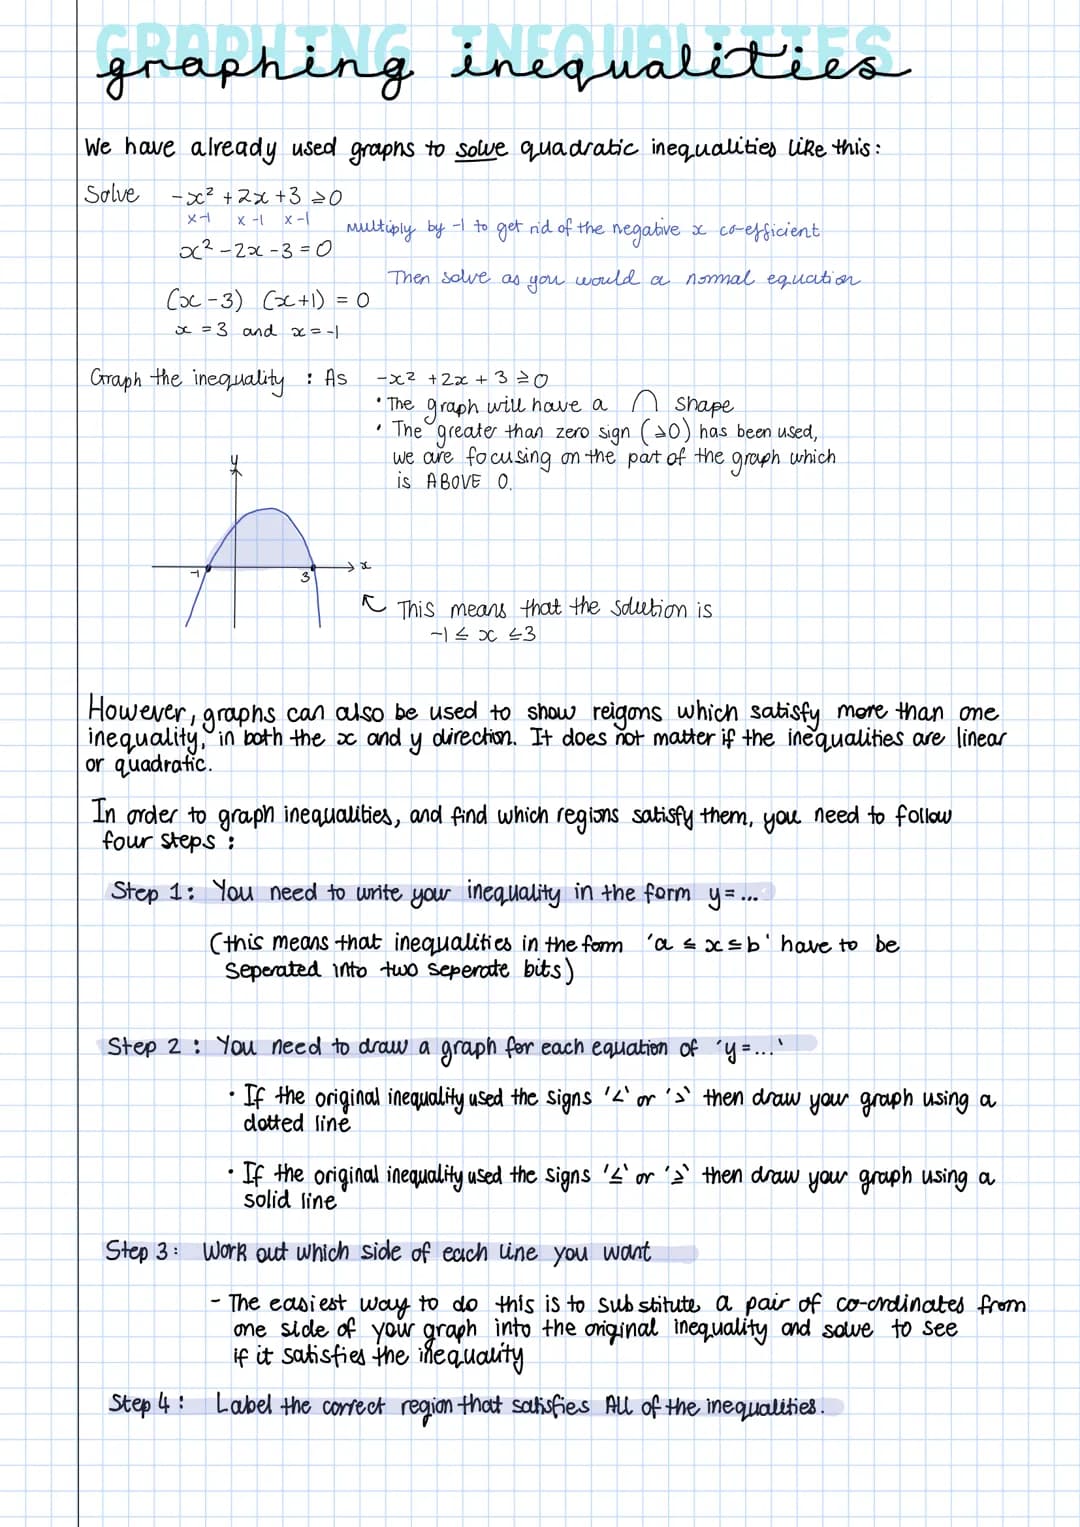 GRAPHING INEQUALITIES
graphing inequalities
We have already used graphs to solve quadratic inequalities like this:
Solve -x² + 2x + 3 ≥0
x-1 x-1 x-1
multiply by -1 to get rid of the negative x co-efficient
x² - 2x - 3 = 0
Then solve as you would a normal equation
(x-3) (x+1) = 0
x = 3 and x = -1
Graph the inequality : As -x² + 2x + 3 ≥0
• The graph will have a ∩ shape
• The greater than zero sign (≥0) has been used,
we are focusing on the part of the graph which
is ABOVE 0.
y
-1 3 x
↖ This means that the solution is
-1 ≤ x ≤3
However, graphs can also be used to show reigons which satisfy more than one
inequality, in both the x and y direction. It does not matter if the inequalities are linear
or quadratic.
In order to graph inequalities, and find which regions satisfy them, you need to follow
four steps :
Step 1: You need to write your inequality in the form y = ...
(this means that inequalities in the form 'a ≤ x ≤ b' have to be
Seperated into two seperate bits)
Step 2 : You need to draw a graph for each equation of 'y = ...'
• If the original inequality used the signs '<' or '>' then draw your graph using a
dotted line
• If the original inequality used the signs '≤' or '≥' then draw your graph using a
solid line
Step 3: Work out which side of each line you want
- The easiest way to do this is to substitute a pair of co-ordinates from
one side of your graph into the original inequality and solve to see
if it satisfies the inequality
Step 4: Label the correct region that satisfies ALL of the inequalities.